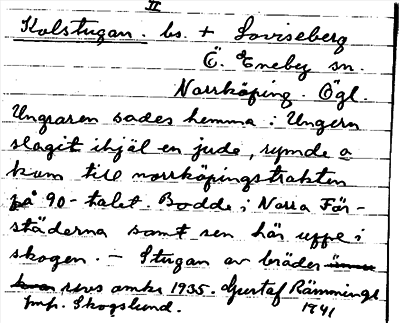 II
Kolstugan. bs. + Loviseberg
Ö. Eneby sn.
Norrköping. Ögl.
Ungraren sades hemma i Ungern
slagit ihjäl en jude, rymde o
kom till norrköpingstrakten
på 90-talet. Bodde i Norra För-
städerna samt sen här uppe i
skogen. - Stugan av bräder
revs omkr 1935. Gustaf Rämminge
Skogslund. 1941